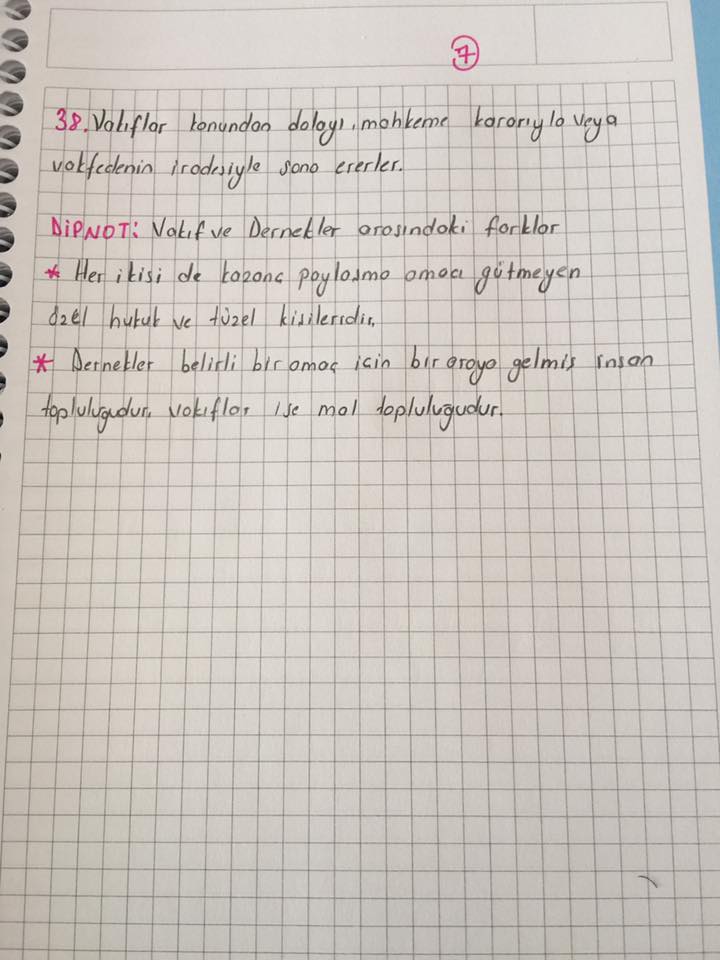 7
38. Vakıflar kanundan dolayı, mahkeme kararıyla veya
vakfedenin iradesiyle sona ererler.
DİPNOT: Vakıf ve Dernekler arasındaki farklar
* Her ikisi de kazanç paylaşma amacı gütmeyen
özel hukuk ve tüzel kisileridir.
* Dernekler belirli bir amaç icin bir araya gelmis insan
toplulugudur, vakıflar ise mal toplulugudur.